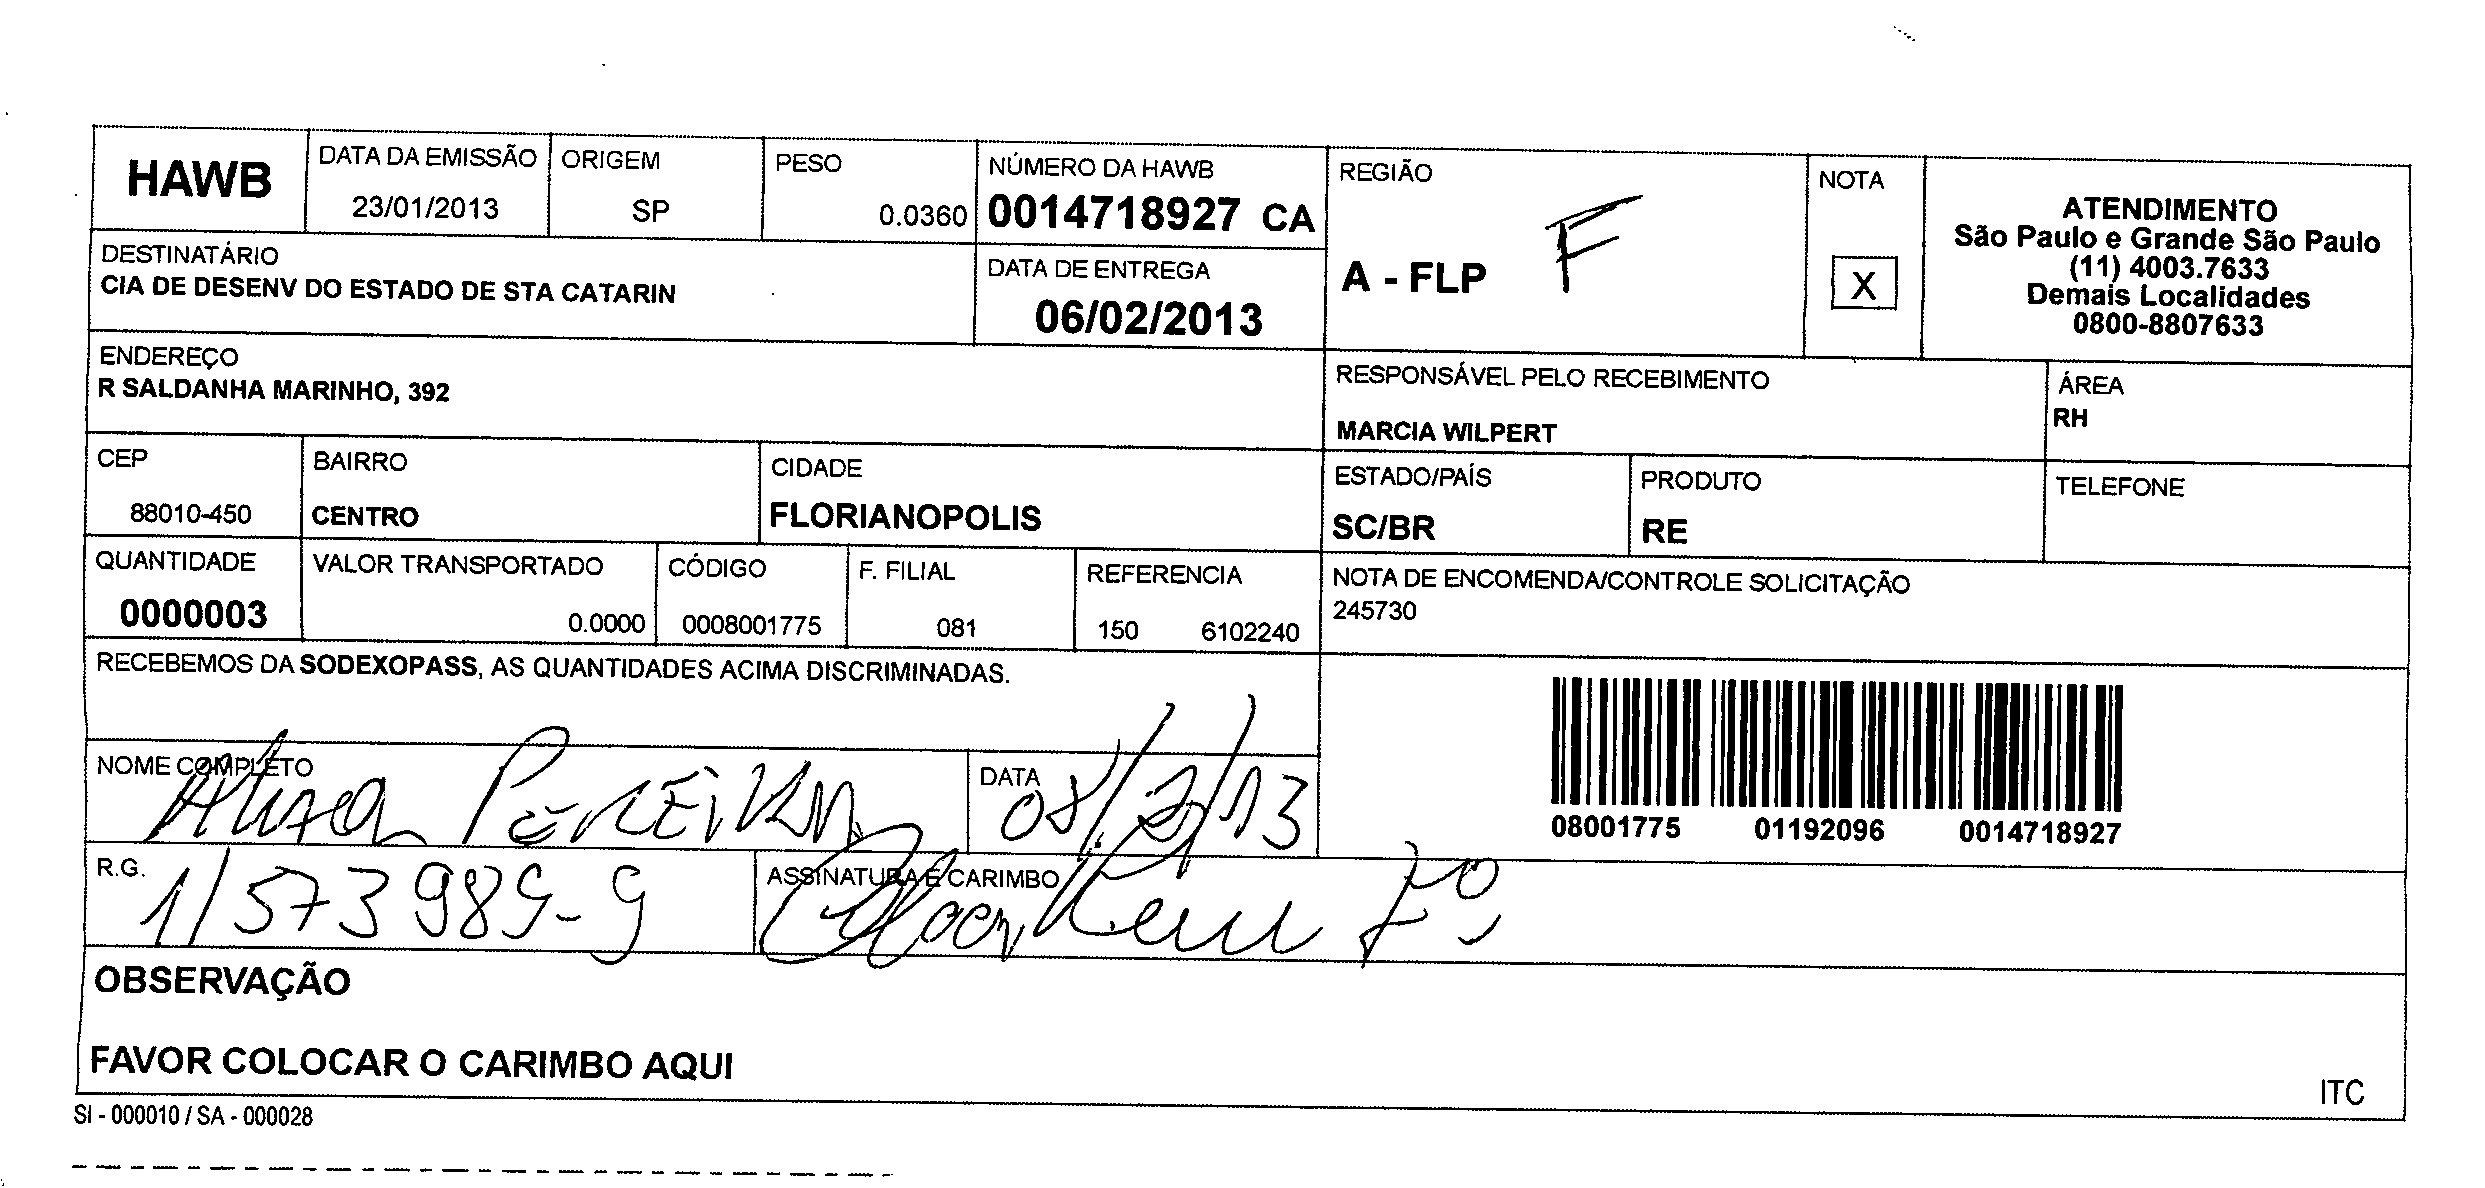 HAWB
DATA DA EMISSÃO
23/01/2013
ORIGEM
SP
PESO
0.0360
NÚMERO DA HAWB
0014718927 CA
REGIÃO
A - FLP
F
NOTA
X
ATENDIMENTO
São Paulo e Grande São Paulo
(11) 4003.7633
Demais Localidades
0800-8807633
DESTINATÁRIO
CIA DE DESENV DO ESTADO DE STA CATARIN
DATA DE ENTREGA
06/02/2013
ENDEREÇO
R SALDANHA MARINHO, 392
RESPONSÁVEL PELO RECEBIMENTO
MARCIA WILPERT
ÁREA
RH
CEP
88010-450
BAIRRO
CENTRO
CIDADE
FLORIANOPOLIS
ESTADO/PAÍS
SC/BR
PRODUTO
RE
TELEFONE
QUANTIDADE
0000003
VALOR TRANSPORTADO
0.0000
CÓDIGO
0008001775
F. FILIAL
081
REFERENCIA
150 6102240
NOTA DE ENCOMENDA/CONTROLE SOLICITAÇÃO
245730
RECEBEMOS DA SODEXOPASS, AS QUANTIDADES ACIMA DISCRIMINADAS.
08001775 01192096 0014718927
NOME COMPLETO
PEREIRA
DATA
08/2/13
R.G.
1/573989-9
ASSINATURA E CARIMBO
OBSERVAÇÃO
FAVOR COLOCAR O CARIMBO AQUI
ITC
SI - 000010 / SA - 000028